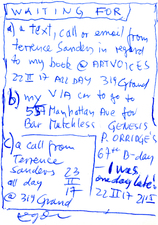 WAITING FOR
a) a text, call or email from
Terrence Sanders in regard
to my book @ ARTVOICES
22 II 17 ALL DAY 319 Grand
b) my VIA car to go to
551 Manhattan Ave for
Ear Matchless GENESIS
P. ORRIDGE'S
67th B-day
I was
one day late
22 II 17 2115
c) a call from
Terrence
Sanders 23
all day II
17
@ 319 Grand